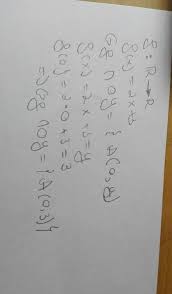 g: R → R
g(x) = 2x+3
Gg ∩ Oy = { A(0,y)
g(x) = 2x+3 = y
g(0) = 2·0+3 = 3
=> Gg ∩ Oy = {A(0,3)}